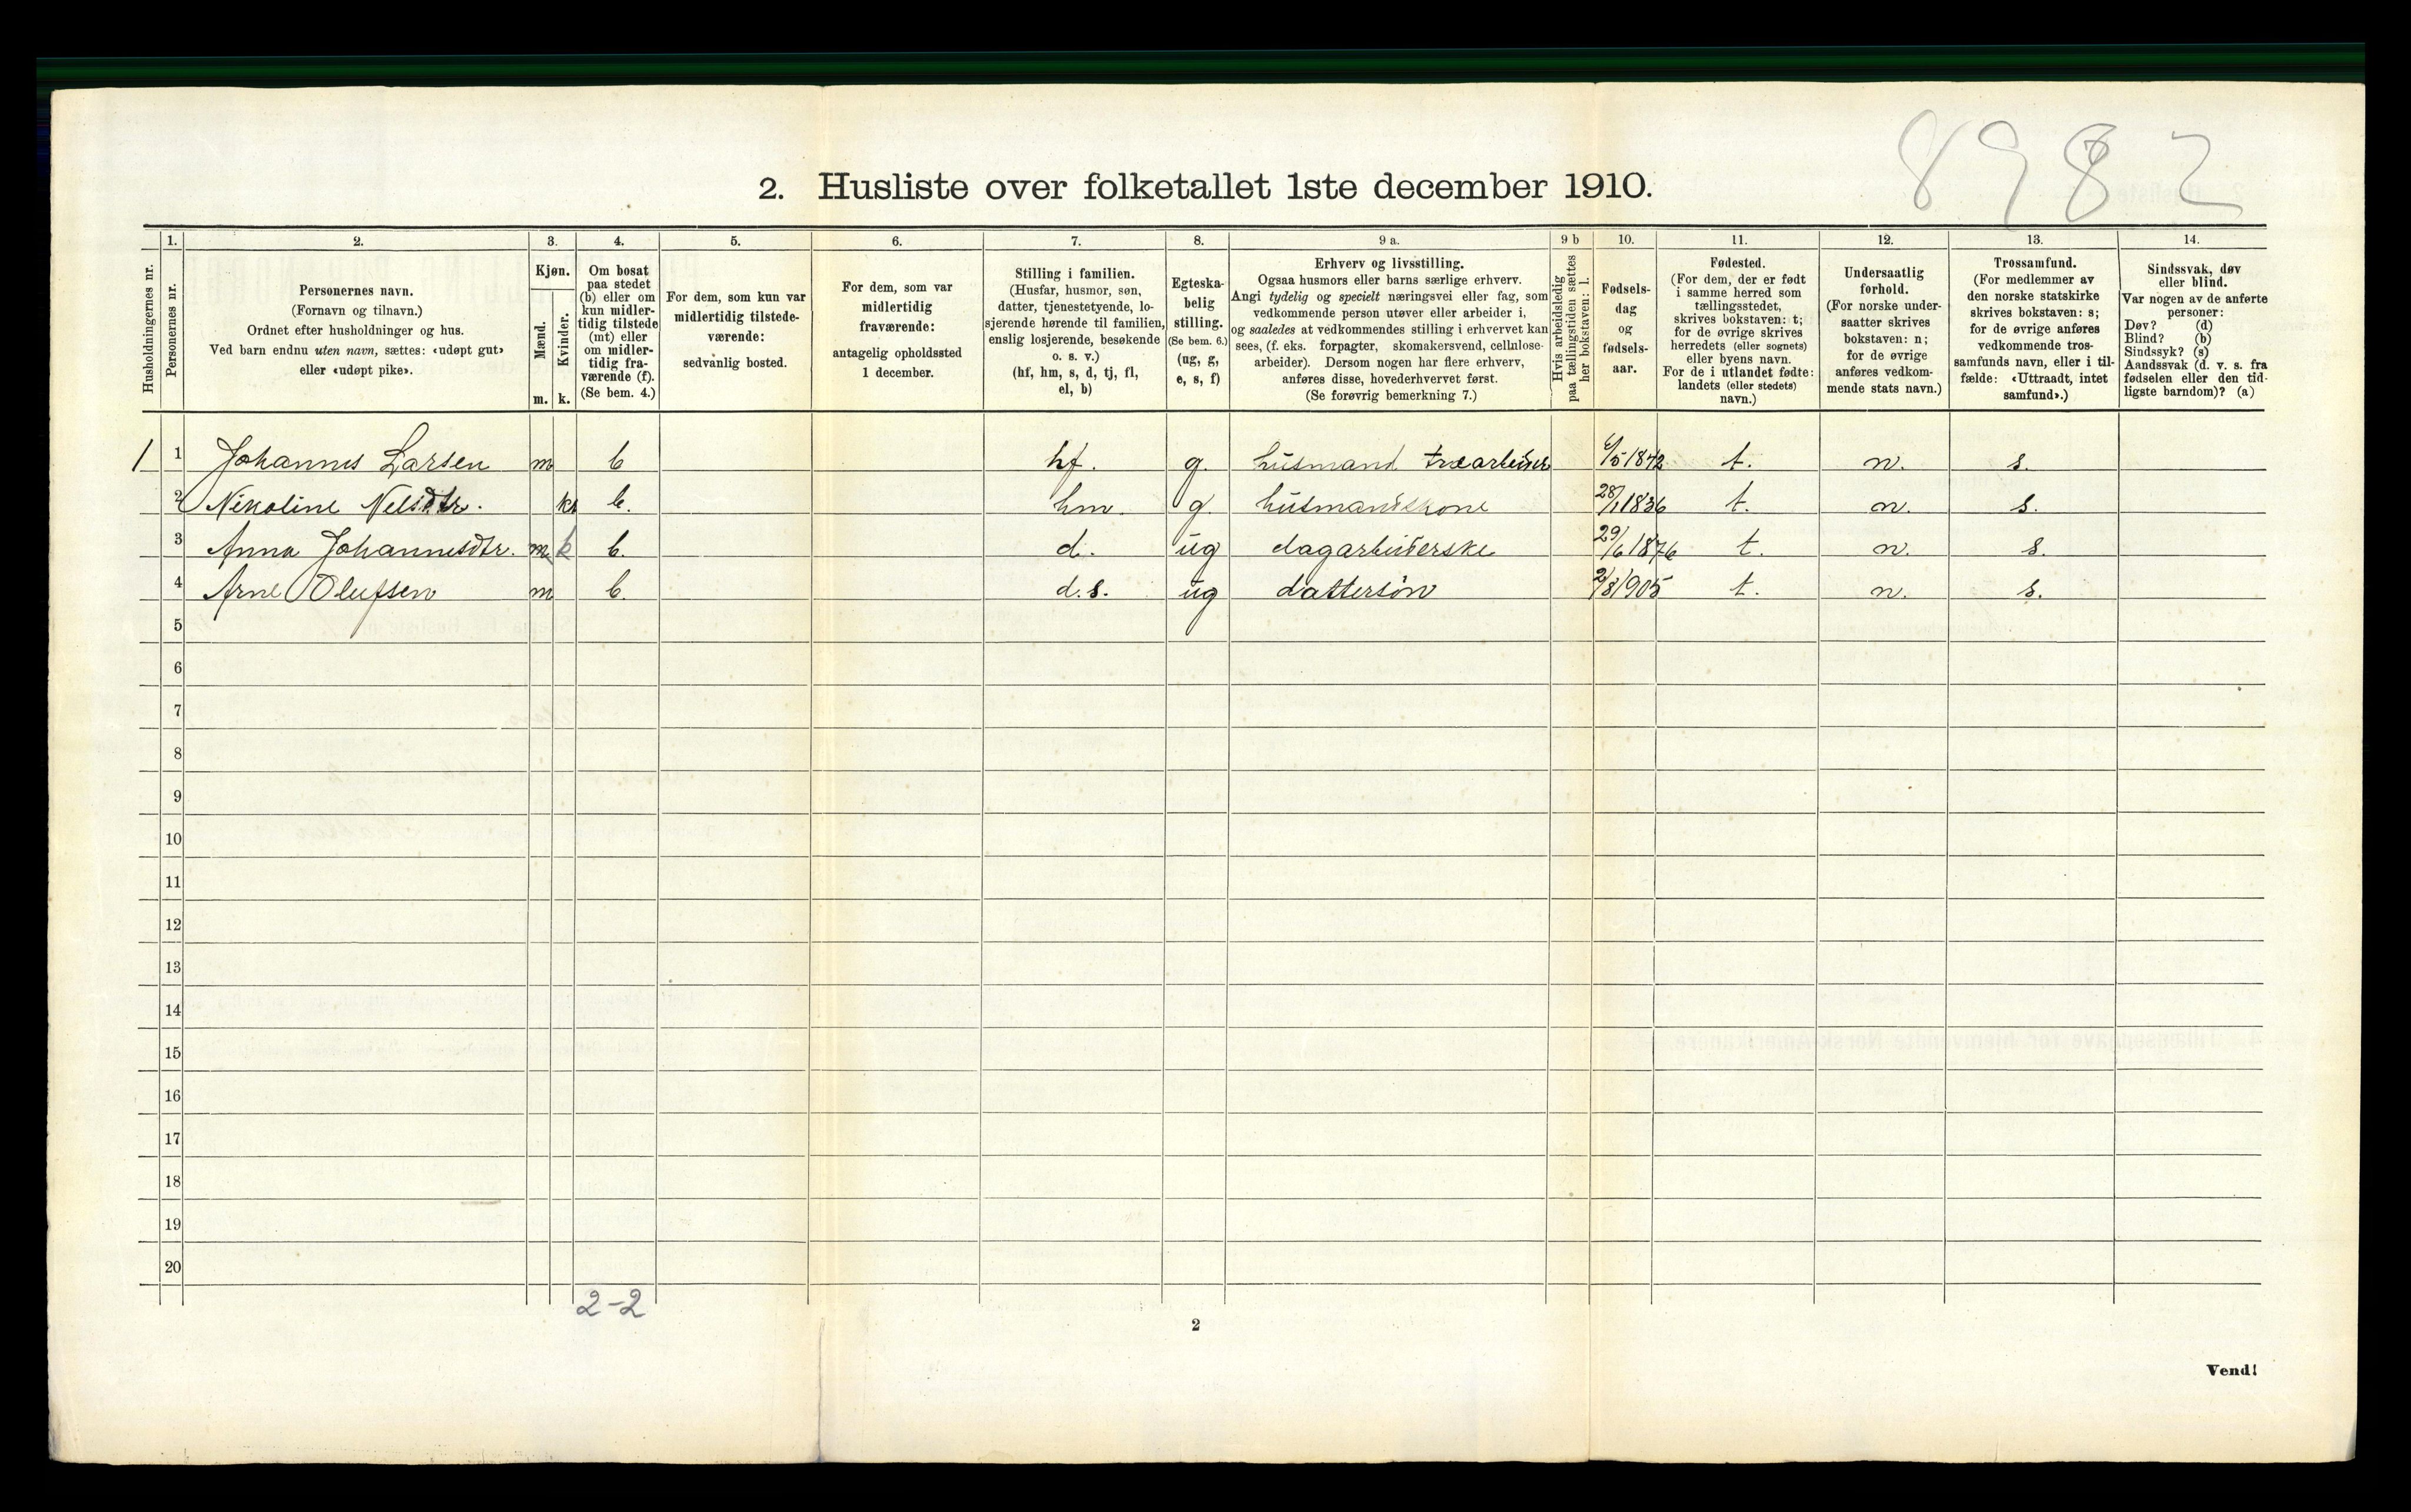 8982
2. Husliste over folketallet 1ste december 1910.
Husholdningernes nr.
1.
Personernes nr.
2.
Personernes navn.
(Fornavn og tilnavn.)
Ordnet efter husholdninger og hus.
Ved barn endnu uten navn, sættes: «udøpt gut»
eller «udøpt pike».
3.
Kjøn.
Mænd.
Kvinder.
m. k.
4.
Om bosat
paa stedet
(b) eller om
kun midler-
tidig tilstede
(mt) eller
om midler-
tidig fra-
værende (f).
(Se bem. 4.)
5.
For dem, som kun var
midlertidig tilstede-
værende:
sedvanlig bosted.
6.
For dem, som var
midlertidig
fraværende:
antagelig opholdssted
1 december.
7.
Stilling i familien.
(Husfar, husmor, søn,
datter, tjenestetyende, lo-
sjerende hørende til familien,
enslig losjerende, besøkende
o. s. v.)
(hf, hm, s, d, tj, fl,
el, b)
8.
Egteska-
belig
stilling.
(Se bem. 6.)
(ug, g,
e, s, f)
9 a.
Erhverv og livsstilling.
Ogsaa husmors eller barns særlige erhverv.
Angi tydelig og specielt næringsvei eller fag, som
vedkommende person utøver eller arbeider i,
og saaledes at vedkommendes stilling i erhvervet kan
sees, (f. eks. forpagter, skomakersvend, cellulose-
arbeider). Dersom nogen har flere erhverv,
anføres disse, hovederhvervet først.
(Se forøvrig bemerkning 7.)
9 b
Hvis arbeidsledig
paa tællingstiden sættes
her bokstaven: l.
10.
Fødsels-
dag
og
fødsels-
aar.
11.
Fødested.
(For dem, der er født
i samme herred som
tællingsstedet,
skrives bokstaven: t;
for de øvrige skrives
herredets (eller sognets)
eller byens navn.
For de i utlandet fødte:
landets (eller stedets)
navn.)
12.
Undersaatlig
forhold.
(For norske under-
saatter skrives
bokstaven: n;
for de øvrige
anføres vedkom-
mende stats navn.)
13.
Trossamfund.
(For medlemmer av
den norske statskirke
skrives bokstaven: s;
for de øvrige anføres
vedkommende tros-
samfunds navn, eller i til-
fælde: «Uttraadt, intet
samfund».)
14.
Sindssvak, døv
eller blind.
Var nogen av de anførte
personer:
Døv? (d)
Blind? (b)
Sindssyk? (s)
Aandssvak (d. v. s. fra
fødselen eller den tid-
ligste barndom)? (a)
1 1 Johannes Larsen m b hf. g. husmand træarbeider /5 1842 t. n. s.
2 Nikoline Nelsdtr. k b. hm. g. husmandskone 28/1 1836 t. n. s.
3 Anna Johannesdtr. m k b. d. ug dagarbeiderske 29/6 1876 t. n. s.
4 Arne Olufsen m b. d.s. ug dattersön 2/8 1905 t. n. s.
5
6
7
8
9
10
11
12
13
14
15
16
17
18
19
20
2-2
2
Vend!